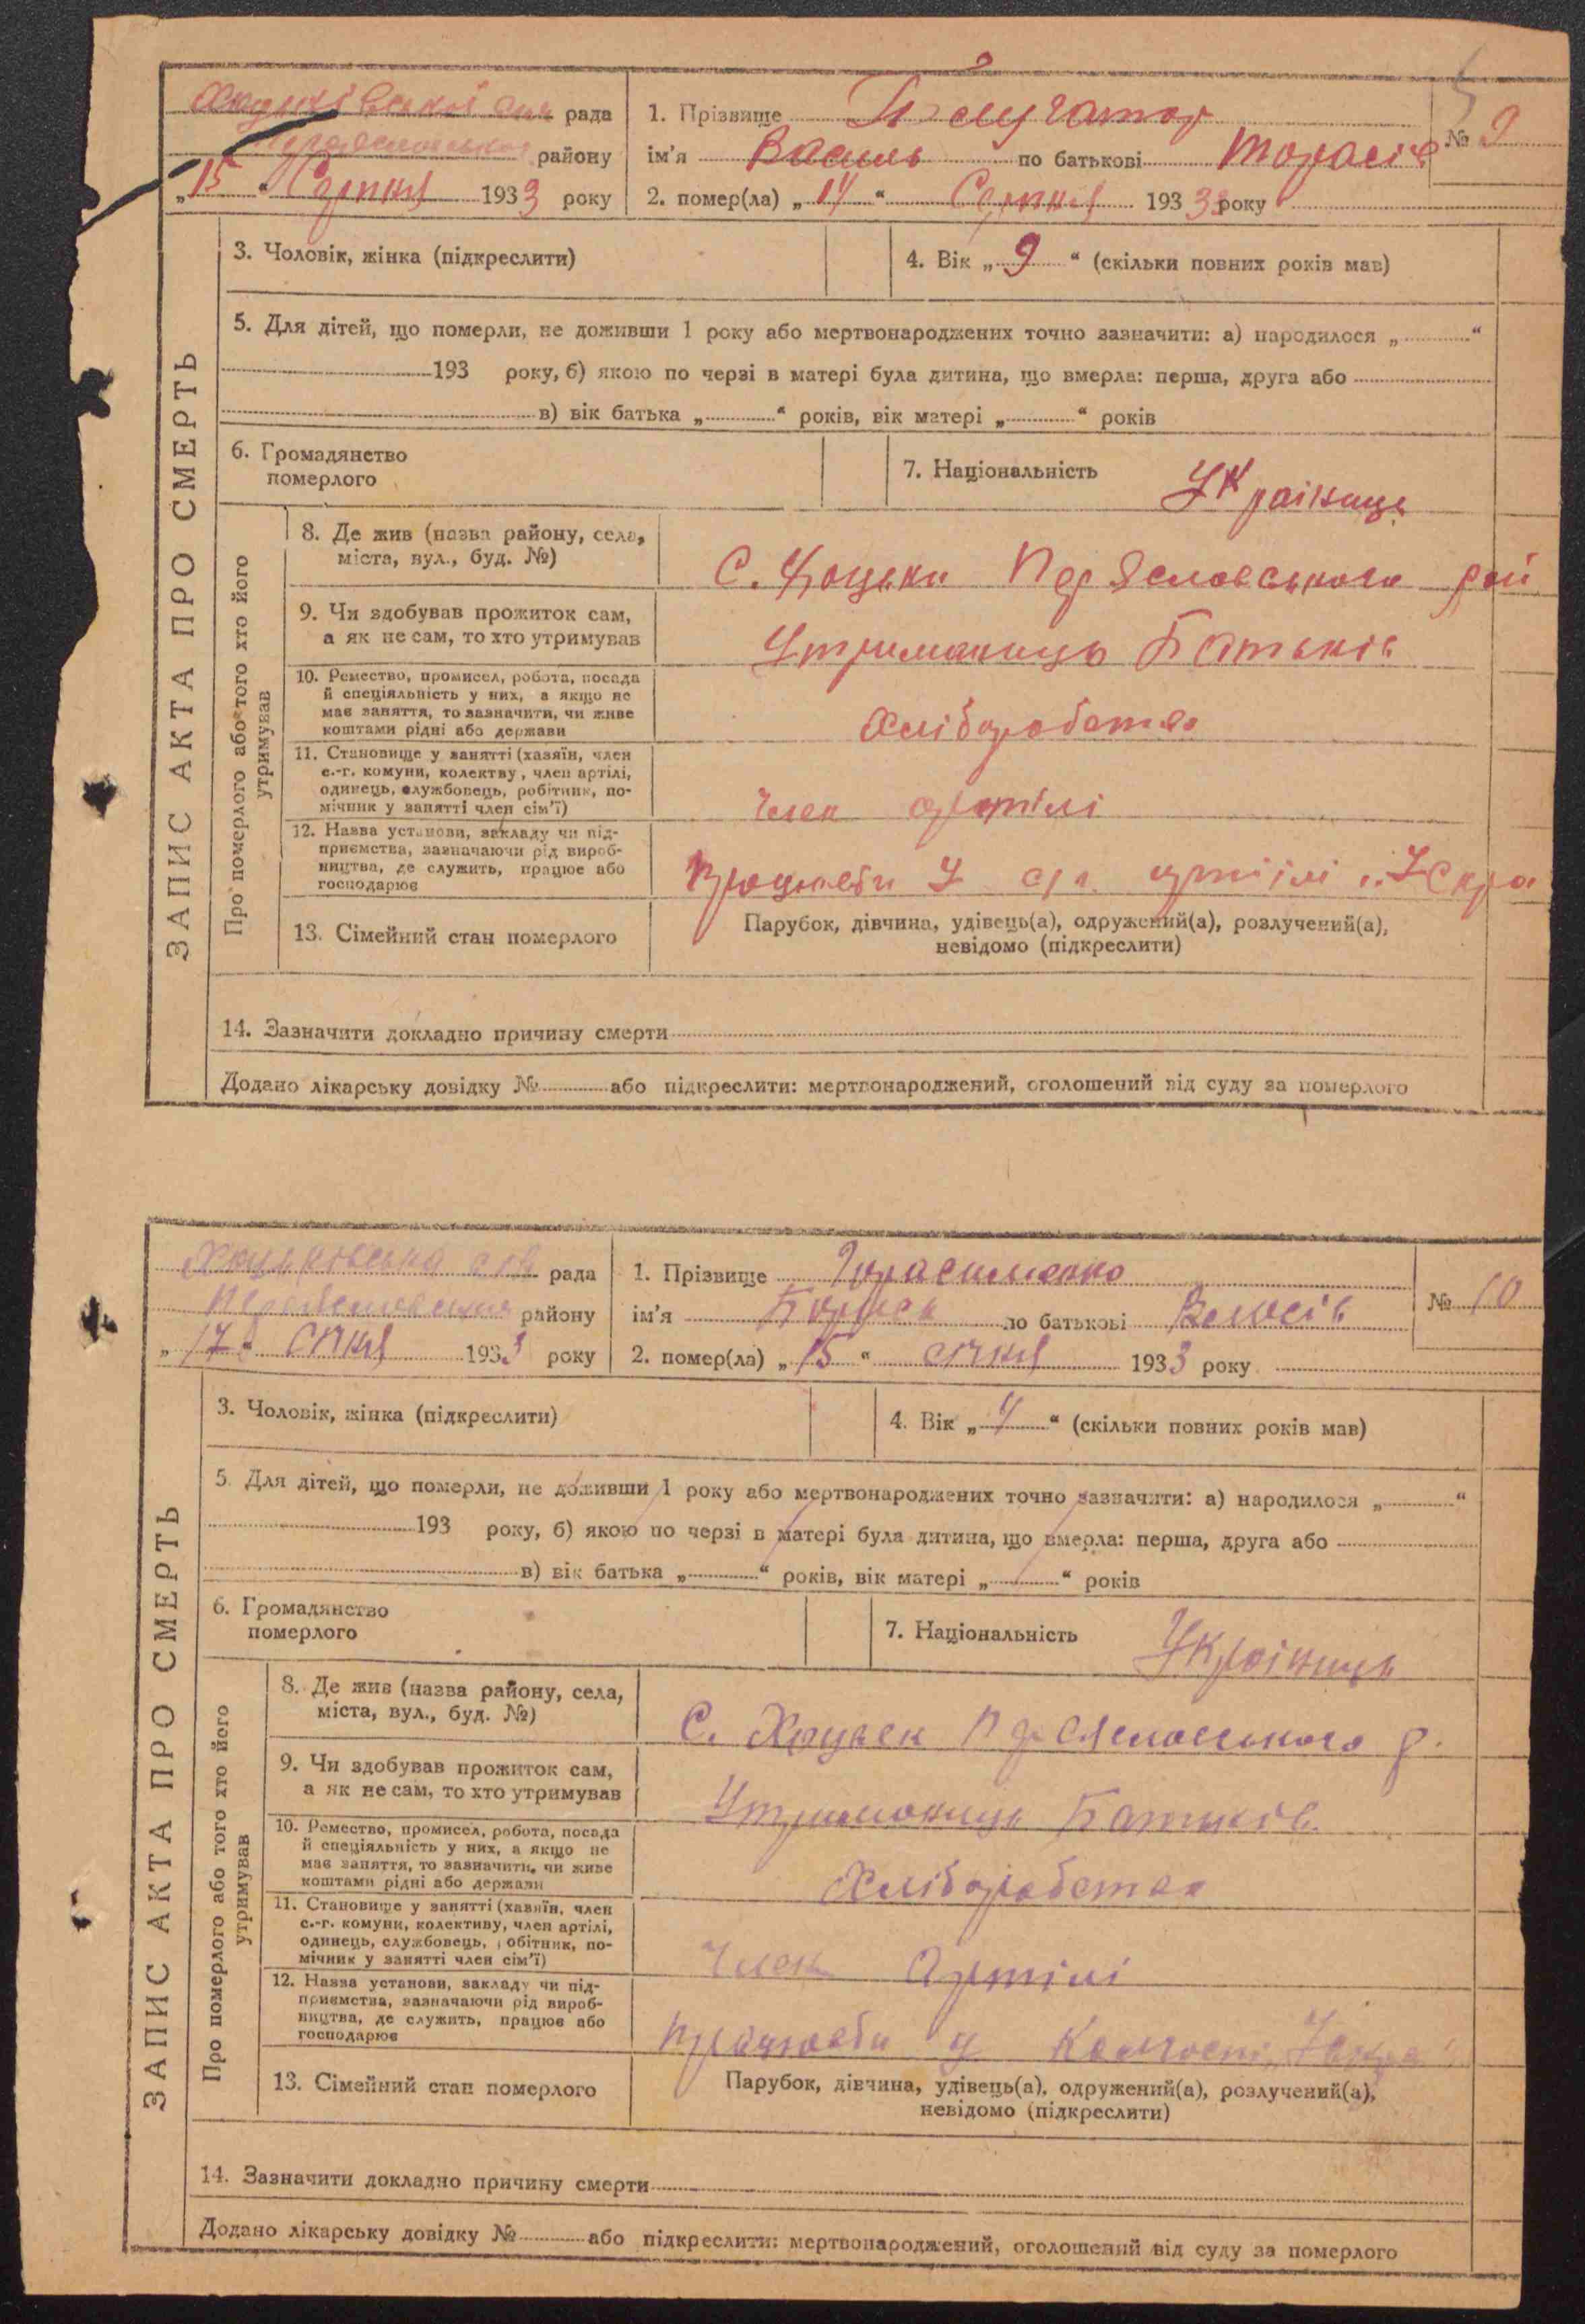 рада
району
„ 15 “ Серпня 1933 року
1. Прізвище
ім'я Василь по батькові Тарасів
2. помер(ла) „ 14 “ Серпня 1933 року
№ 9
ЗАПИС АКТА ПРО СМЕРТЬ
3. Чоловік, жінка (підкреслити)
4. Вік „ 9 “ (скільки повних років мав)
5. Для дітей, що померли, не доживши 1 року або мертвонароджених точно зазначити: а) народилося „ “
193 року, б) якою по черзі в матері була дитина, що вмерла: перша, друга або
в) вік батька „ “ років, вік матері „ “ років
6. Громадянство
померлого
7. Національність Українець
Про померлого або того хто його
утримував
8. Де жив (назва району, села,
міста, вул., буд. №)
С. Хоцьки
9. Чи здобував прожиток сам,
а як не сам, то хто утримував
Утриманець Батьків
10. Ремество, промисел, робота, посада
й спеціяльність у них, а якщо не
має заняття, то зазначити, чи живе
коштами рідні або держави
Хліборобства
11. Становище у занятті (хазяїн, член
с.-г. комуни, колектву, член артілі,
одинець, службовець, робітник, по-
мічник у занятті член сім'ї)
Член артілі
12. Назва установи, закладу чи під-
приємства, зазначаючи рід вироб-
ництва, де служить, працює або
господарює
У артілі „Іскра
13. Сімейний стан померлого
Парубок, дівчина, удівець(а), одружений(а), розлучений(а),
невідомо (підкреслити)
14. Зазначити докладно причину смерти
Додано лікарську довідку № або підкреслити: мертвонароджений, оголошений від суду за померлого
рада
району
„ 17 “ січня 1933 року
1. Прізвище Герасименко
ім'я по батькові
2. помер(ла) „ 15 “ січня 1933 року
№ 10
ЗАПИС АКТА ПРО СМЕРТЬ
3. Чоловік, жінка (підкреслити)
4. Вік „ “ (скільки повних років мав)
5. Для дітей, що померли, не доживши 1 року або мертвонароджених точно зазначити: а) народилося „ “
193 року, б) якою по черзі в матері була дитина, що вмерла: перша, друга або
в) вік батька „ “ років, вік матері „ “ років
6. Громадянство
померлого
7. Національність Українець
Про померлого або того хто його
утримував
8. Де жив (назва району, села,
міста, вул., буд. №)
С. р.
9. Чи здобував прожиток сам,
а як не сам, то хто утримував
Утриманець Батьків
10. Ремество, промисел, робота, посада
й спеціяльність у них, а якщо не
має заняття, то зазначити, чи живе
коштами рідні або держави
Хліборобства
11. Становище у занятті (хазяїн, член
с.-г. комуни, колективу, член артілі,
одинець, службовець, робітник, по-
мічник у занятті член сім'ї)
Член Артілі
12. Назва установи, закладу чи під-
приємства, зазначаючи рід вироб-
ництва, де служить, працює або
господарює
у
13. Сімейний стан померлого
Парубок, дівчина, удівець(а), одружений(а), розлучений(а),
невідомо (підкреслити)
14. Зазначити докладно причину смерти
Додано лікарську довідку № або підкреслити: мертвонароджений, оголошений від суду за померлого